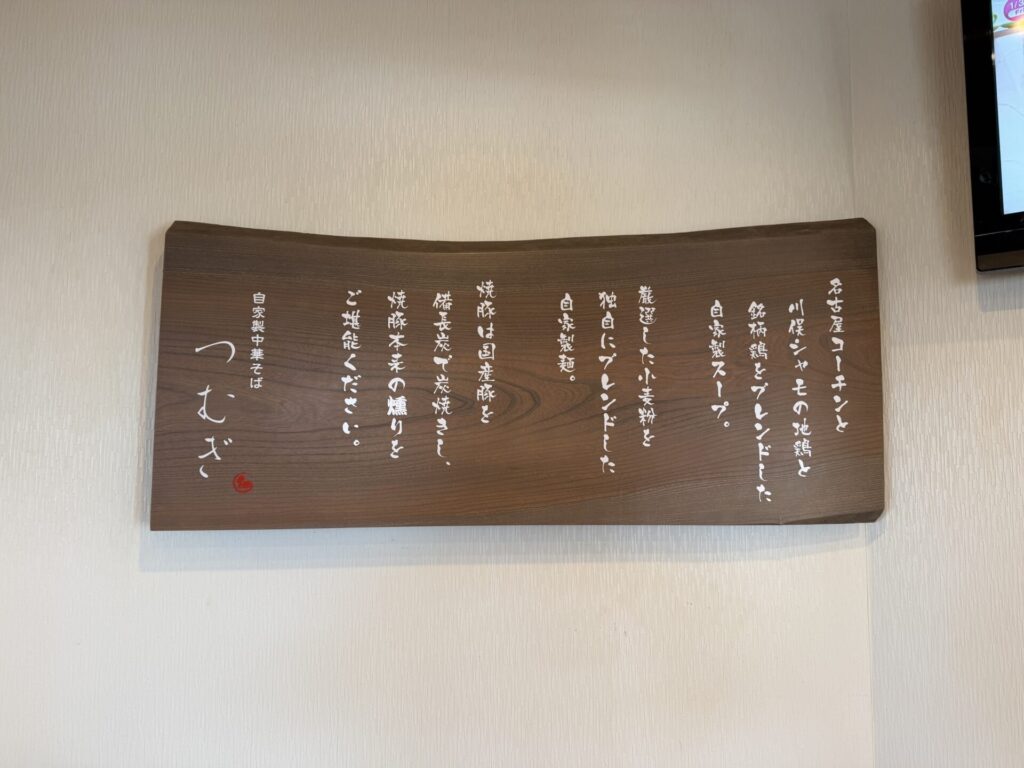 名古屋コーチンと
川俣シャモの地鶏と
銘柄鶏をブレンドした
自家製スープ。
厳選した小麦粉を
独自にブレンドした
自家製麺。
焼豚は国産豚を
備長炭で炭焼きし、
焼豚本来の燻りを
ご堪能ください。
自家製中華そば
つむぎ